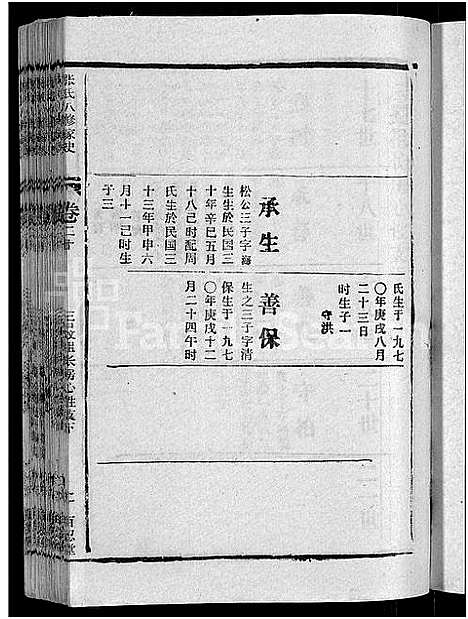 承生
松公三子字海
生生於民国三
十年辛巳五月
十八己时配周
氏生於民国三
十三年甲申六
月十一己时生
子三
氏生于一九七
〇年庚戌八月
二十三日
时生子一
守洪
善保
生之三子字清
保生于一九七
〇年庚戌十二
月二十四午时
张氏八修家史
卷二